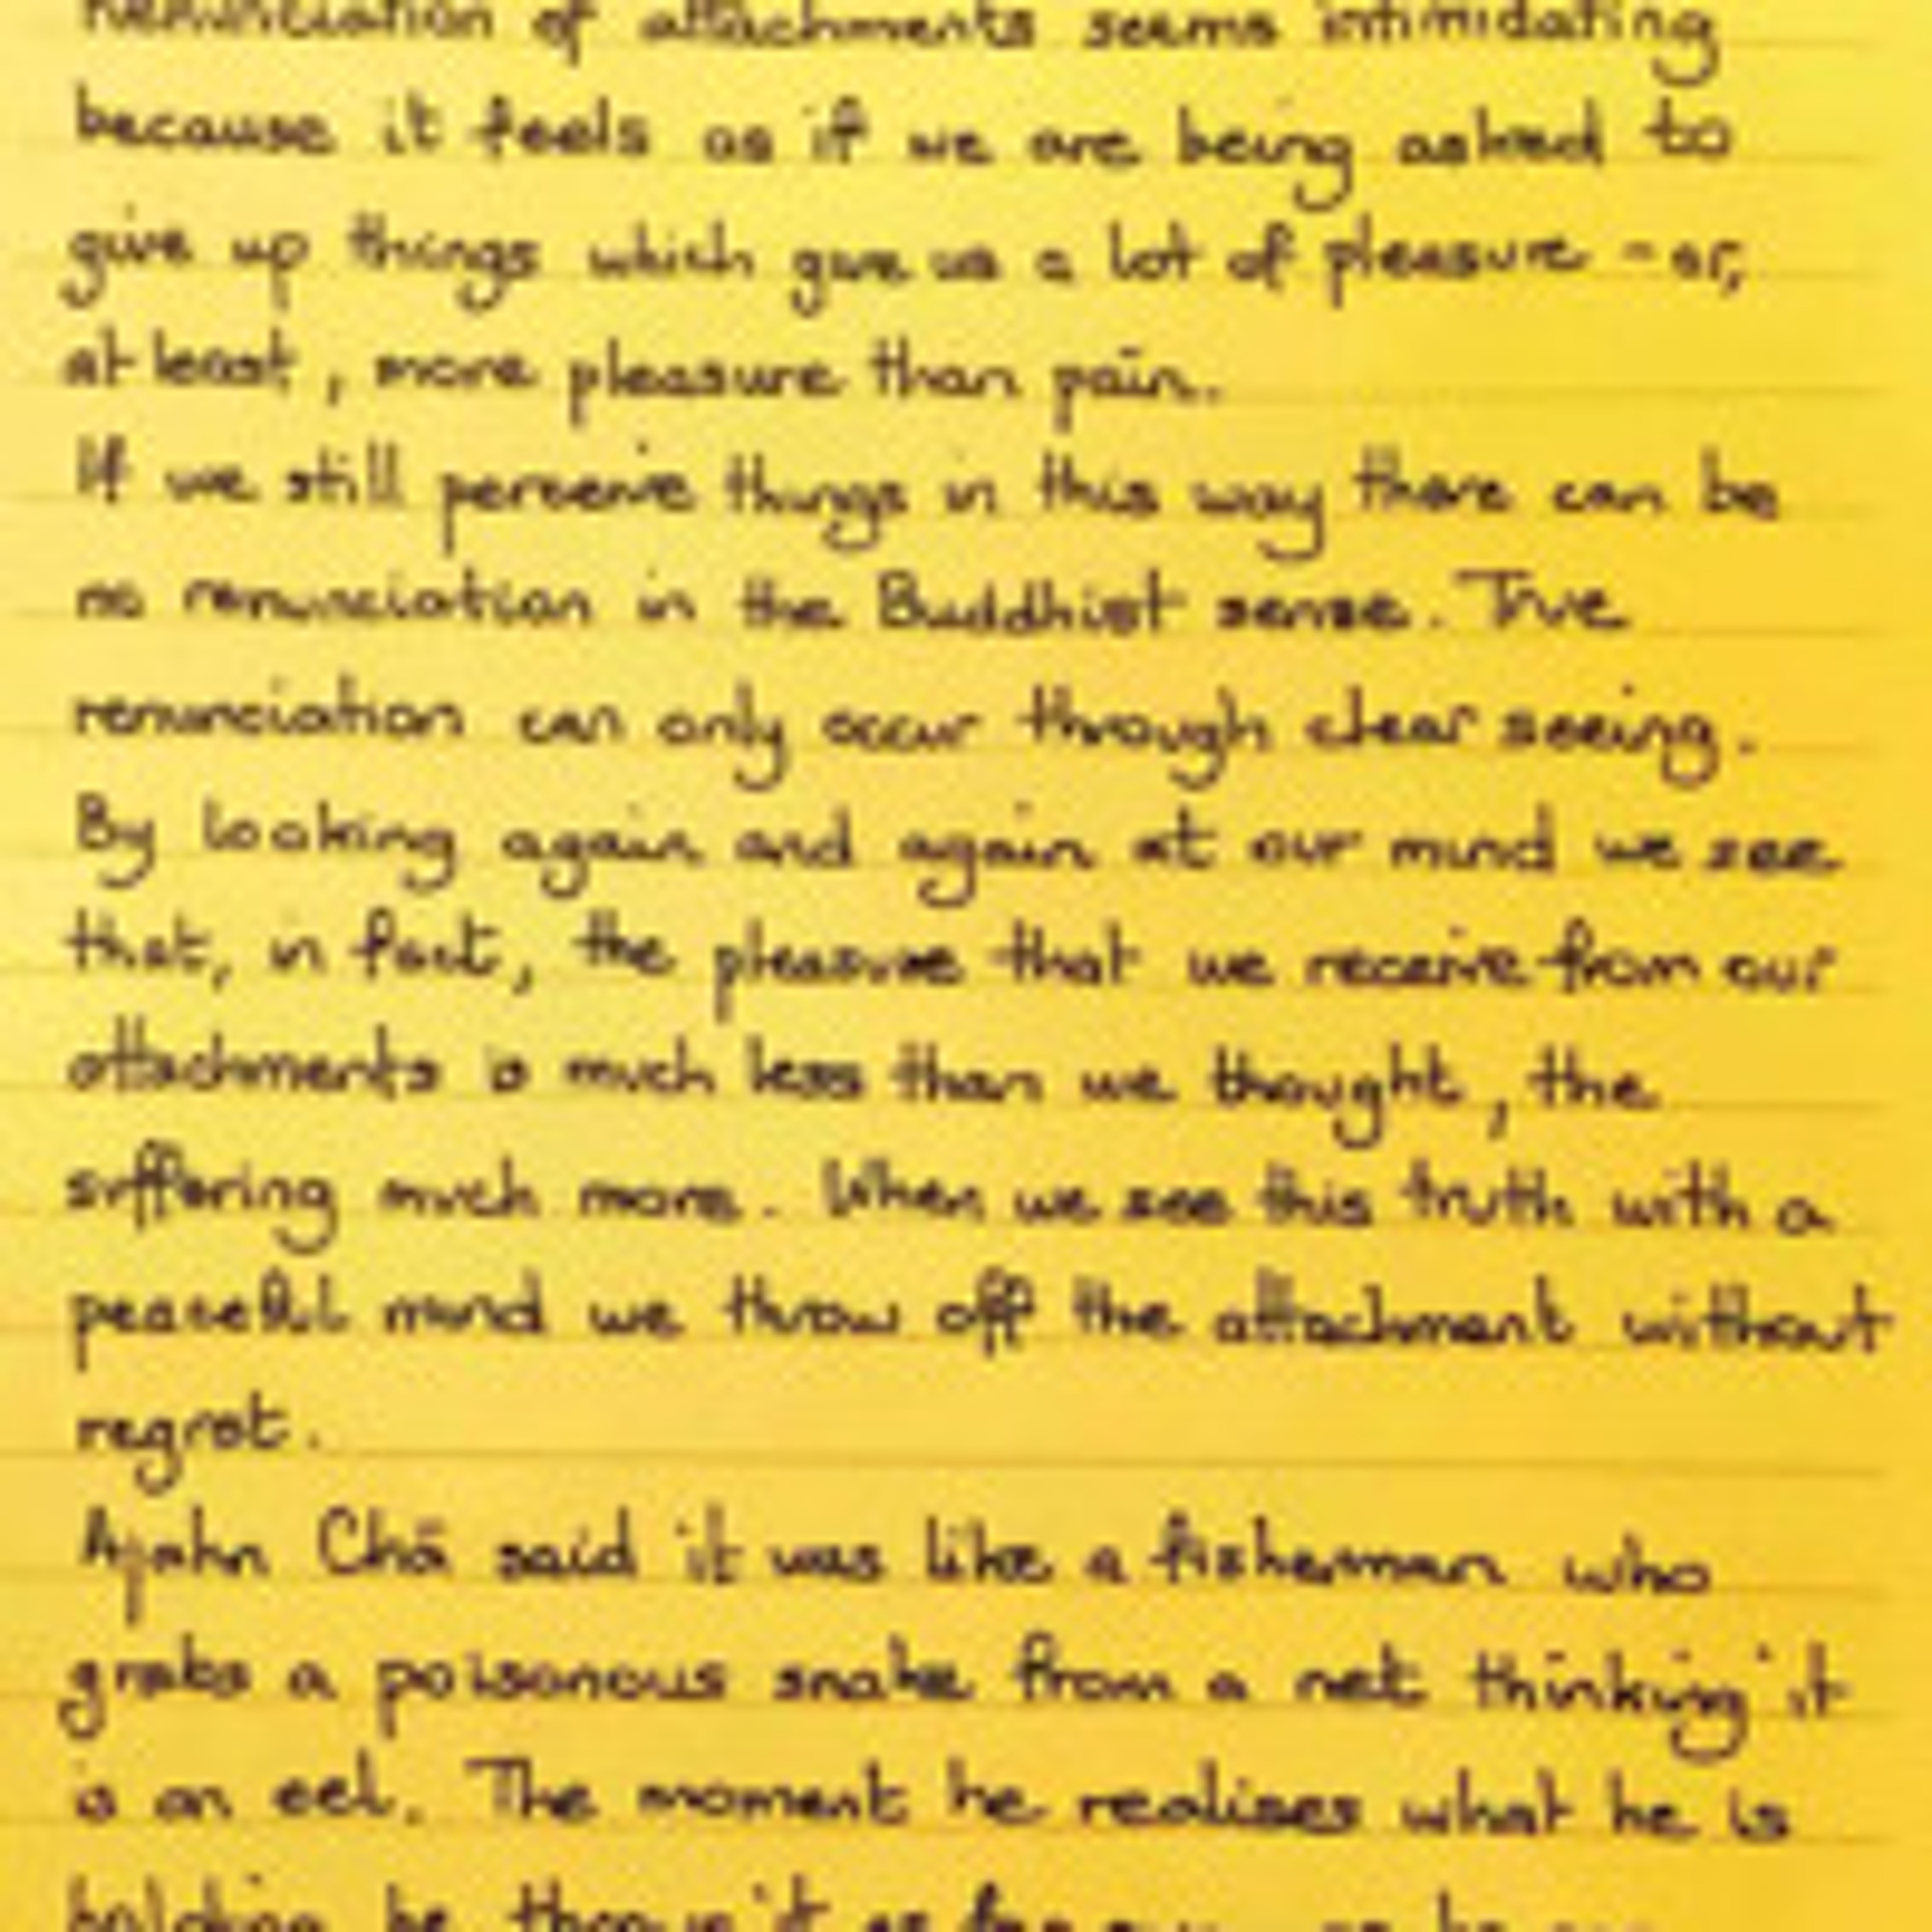 Renunciation of attachments seems intimidating
because it feels as if we are being asked to
give up things which give us a lot of pleasure - or,
at least, more pleasure than pain.
If we still perceive things in this way there can be
no renunciation in the Buddhist sense. True
renunciation can only occur through clear seeing.
By looking again and again at our mind we see
that, in fact, the pleasure that we receive from our
attachments is much less than we thought, the
suffering much more. When we see this truth with a
peaceful mind we throw off the attachment without
regret.
Ajahn Chā said it was like a fisherman who
grabs a poisonous snake from a net thinking it
is an eel. The moment he realises what he is
holding he throws it as far